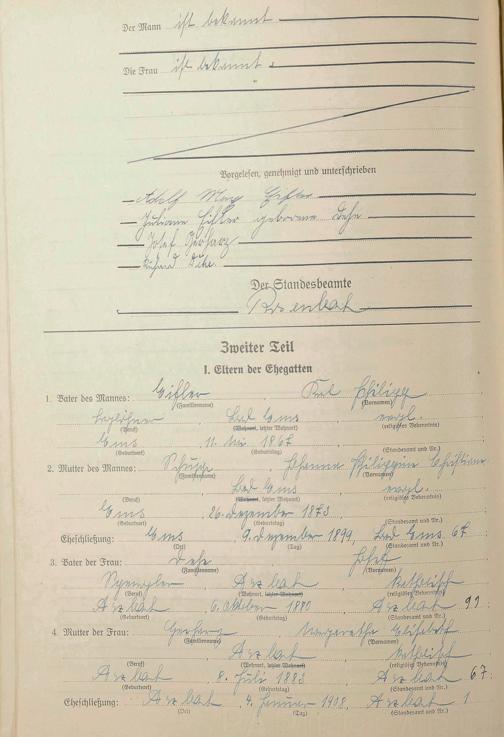 Der Mann ist bekannt
Die Frau ist bekannt
Vorgelesen, genehmigt und unterschrieben
Adolf Max
Juliane geborene Dehe
Josef Gerharz
Richard Dehe.
Der Standesbeamte
Zweiter Teil
I. Eltern der Ehegatten
1. Vater des Mannes: Karl Philipp
(Familienname) (Vornamen)
Bad Ems evgl.
(Beruf) (Wohnort, letzter Wohnort) (religiöses Bekenntnis)
Ems 11. 1867
(Geburtsort) (Geburtstag) (Standesamt und Nr.)
2. Mutter des Mannes: Johanna Philippine Christiane
(Familienname) (Vornamen)
Bad Ems evgl.
(Beruf) (Wohnort, letzter Wohnort) (religiöses Bekenntnis)
Ems 26. Dezember 1873
(Geburtsort) (Geburtstag) (Standesamt und Nr.)
Eheschließung: Ems 9. Dezember 1899, Bad Ems 67
(Ort) (Tag) (Standesamt und Nr.)
3. Vater der Frau: Dehe Josef
(Familienname) (Vornamen)
Spengler Arzbach katholisch
(Beruf) (Wohnort, letzter Wohnort) (religiöses Bekenntnis)
Arzbach 6. Oktober 1880 Arzbach 99
(Geburtsort) (Geburtstag) (Standesamt und Nr.)
4. Mutter der Frau: Gerharz Margarethe Elisabeth
(Familienname) (Vornamen)
Arzbach katholisch
(Beruf) (Wohnort, letzter Wohnort) (religiöses Bekenntnis)
Arzbach 8. Juli 1883 Arzbach 67
(Geburtsort) (Geburtstag) (Standesamt und Nr.)
Eheschließung: Arzbach 4. Januar 1908, Arzbach 1
(Ort) (Tag) (Standesamt und Nr.)